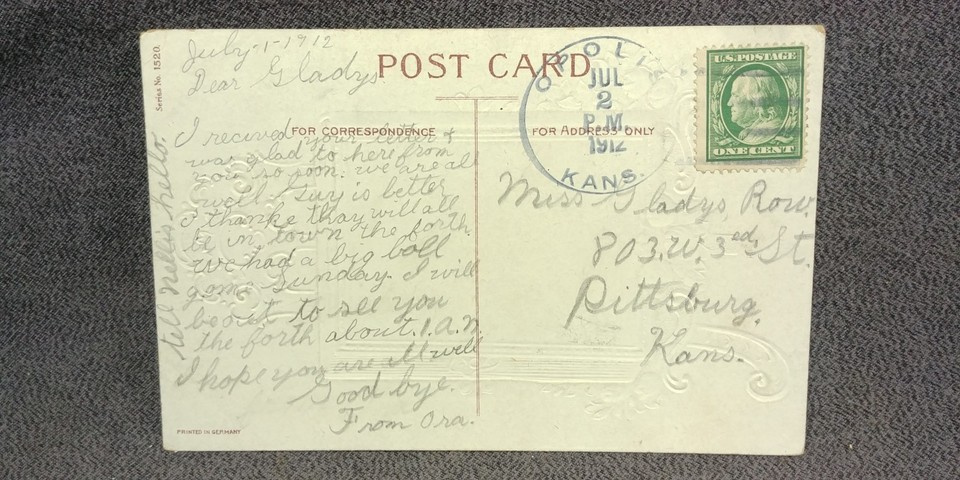 Series No. 1520.
July-1-1912
Dear Gladys
POST CARD
FOR CORRESPONDENCE
I recieved your letter &
was glad to here from
you so soon. we are all
well. Guy is better
I thanke thay will all
be in town the forth.
we had a big ball
game Sunday. I will
be out to see you
the forth about. 1. a.m.
I hope you are all well
Good bye.
From Ora.
tell nellis hello.
PRINTED IN GERMANY
FOR ADDRESS ONLY
OPOLIS
JUL
2
P.M.
1912
KANS.
U.S. POSTAGE
ONE CENT
Miss Gladys Row.
803. W. 3ed St.
Pittsburg,
Kans.